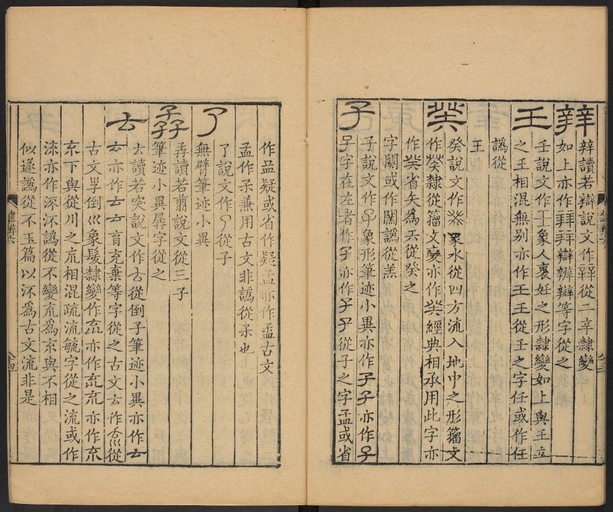 辡
辡讀若辯說文作辡從二辛隸變
如上亦作辡辡辯辨辦等字從之
壬
壬說文作壬象人褢妊之形隸變如上與王㞷
之王相混無別亦作王壬從壬之字任或作任
譌從
王
癸
癸說文作癸象水從四方流入地中之形籀文
作癸隸從籀文變亦作癸經典相承用此字亦
作癸省矢為天從癸之
字闋或作闋譌從羔
子
子說文作子象形筆迹小異亦作子子亦作子
子字在左者作子亦作子子從子之字孟或省
作孟疑或省作疑孟亦作孟古文
孟作㒸兼用古文非譌從柔也
了
了說文作了從子
無臂筆迹小異
孨
孨讀若翦說文從三子
筆迹小異孱字從之
𠫓
去讀若突說文作𠫓從倒子筆迹小異亦作𠫓
𠫓亦作𠫓𠫓育充棄等字從之古文𠫓作㐬從
古文㜽倒巛象髮隸變作㐬亦作㐬㐬亦作㐬
㐬下與從川之㡃相混疏流毓字從之流或作
㳅亦作㳅沠譌從不變㐬為㐬與不相
似遂譌從不玉篇以沠為古文流非是